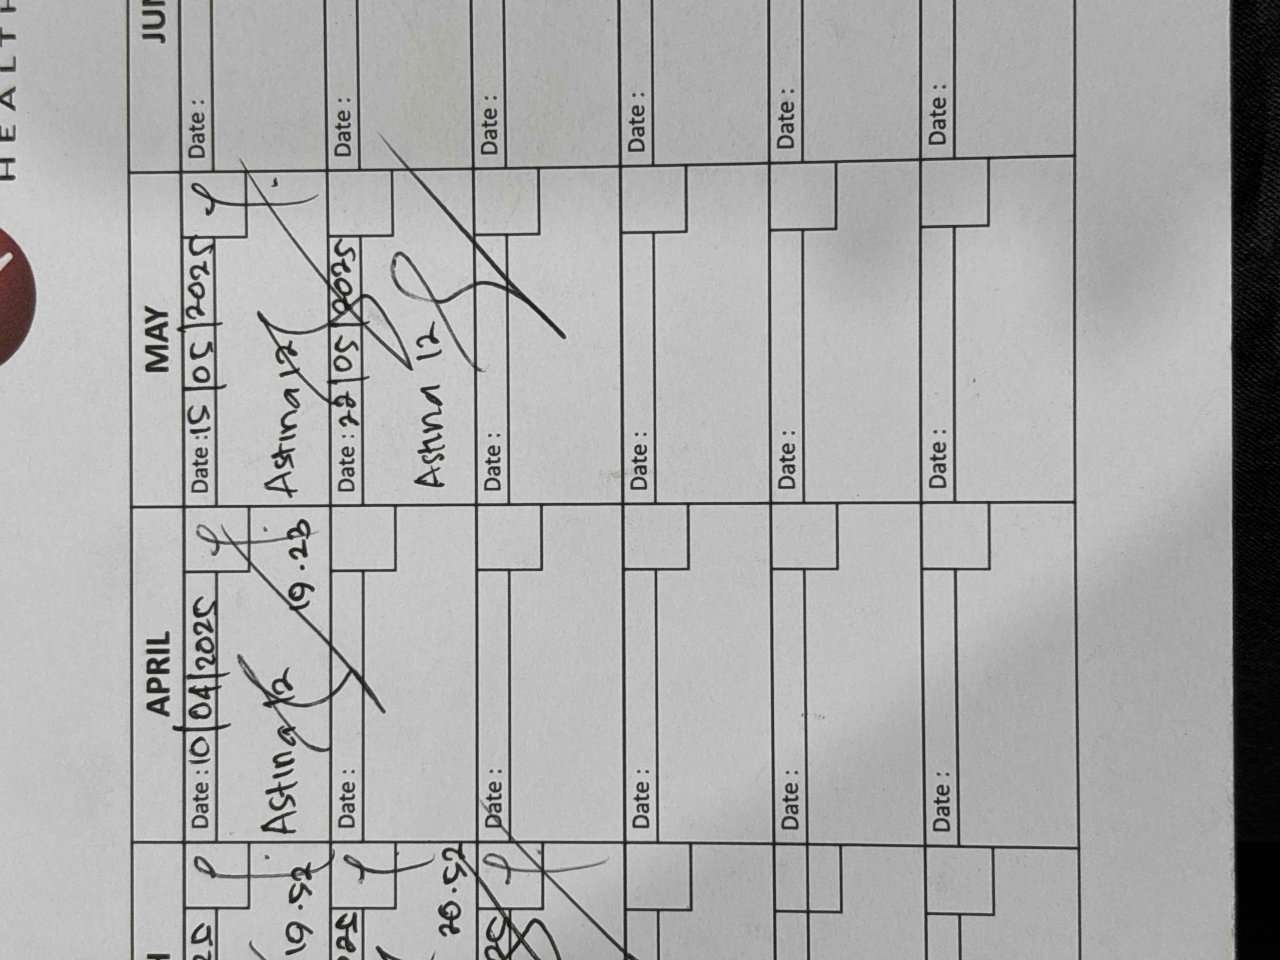 HEALTH
APRIL
MAY
JUN
Date : 10/04/2025
Astina 12
19.23
Date : 15/05/2025
Astina 12
Date :
25
19.52
Date :
Date : 22/05/2025
Astina 12
Date :
25
20.52
Date :
Date :
Date :
25
Date :
Date :
Date :
Date :
Date :
Date :
Date :
Date :
Date :